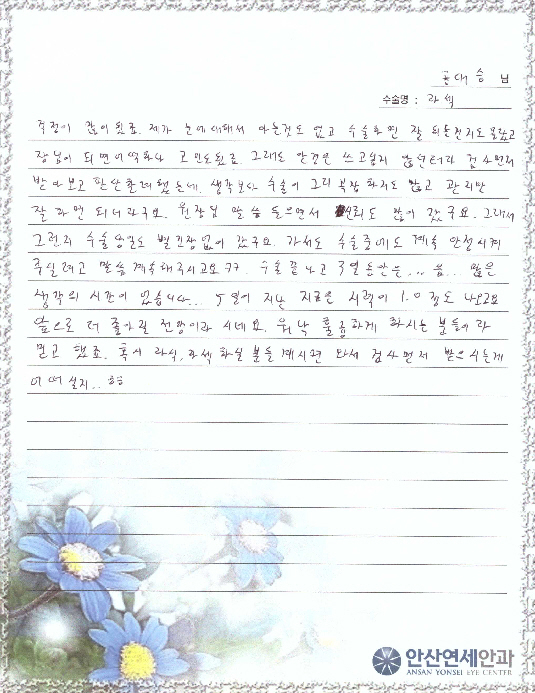 공대승 님
수술명 : 라섹
걱정이 많이 됐죠. 제가 눈에 대해서 아는것도 없고 수술하면 잘 되는건지도 몰랐고
장님이 되면 어떡하나 고민도됐죠. 그래도 안경은 쓰고싶지 않던터라 검사먼저
받아보고 판단할려했는데. 생각보다 수술이 그리 복잡하지도 않고 관리만
잘 하면 되더라구요. 원장님 말씀 들으면서 신뢰도 많이 갔구요. 그래서
그런지 수술당일도 별긴장없이 갔구요. 가서도 수술중에도 계속 안정시켜
주실려고 말씀 계속해주시고요ㅋㅋ. 수술 끝나고 3일동안은... 음... 많은
생각의 시간이 있습니다... 5일이 지난 지금은 시력이 1.0정도 나오고요
앞으로 더 좋아질 전망이라 시네요. 워낙 꼼꼼하게 하시는 분들이라
믿고 했죠. 혹시 라식, 라섹 하실 분들 계시면 와서 검사먼저 받으시는게
어떠실지.. ㅎㅎ
안산연세안과
ANSAN YONSEI EYE CENTER